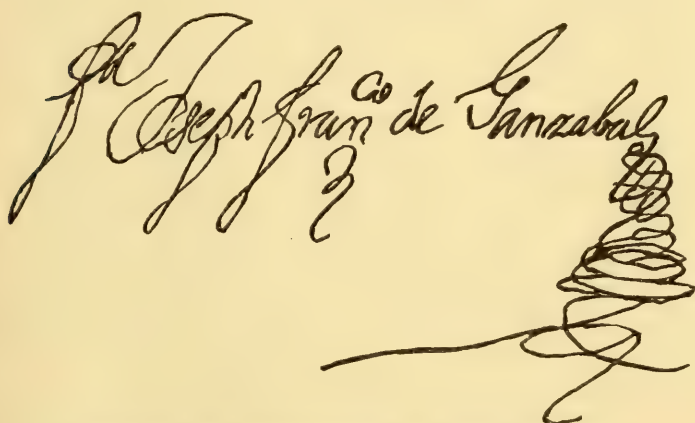 fr Joseph fran^co de Ganzabal